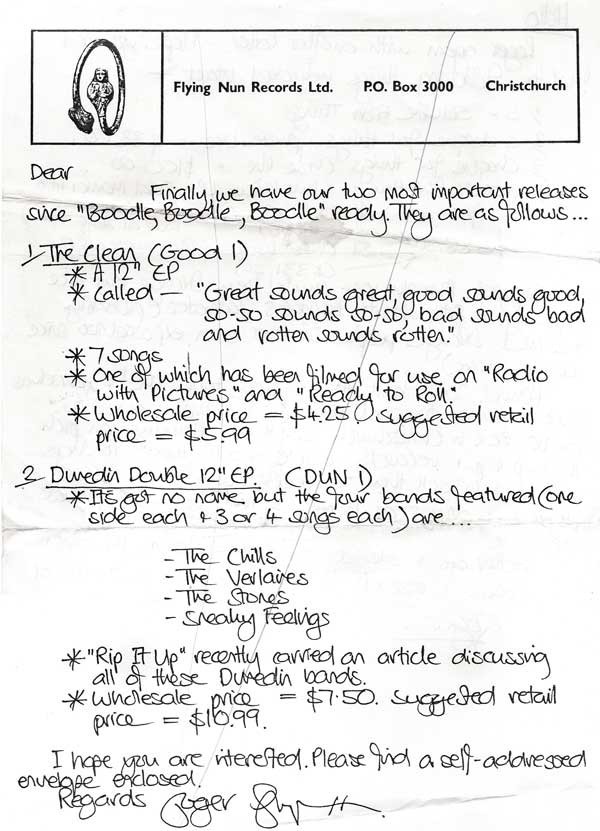 Flying Nun Records Ltd. P.O. Box 3000 Christchurch
Dear
Finally, we have our two most important releases
since "Boodle, Boodle, Boodle" ready. They are as follows...
1/ The Clean (Good 1)
* A 12" EP
* Called - "Great sounds great, good sounds good,
so-so sounds so-so, bad sounds bad
and rotten sounds rotten."
* 7 songs
* One of which has been filmed for use on "Radio
with Pictures" and "Ready to Roll."
* Wholesale price = $4.25 suggested retail
price = $5.99
2 Dunedin Double 12" EP. (DUN 1)
* It's got no name but the four bands featured (one
side each + 3 or 4 songs each) are ...
- The Chills
- The Verlaines
- The Stones
- Sneaky Feelings
* "Rip It Up" recently carried an article discussing
all of these Dunedin bands.
* Wholesale price = $7.50. suggested retail
price = $10.99.
I hope you are interested. Please find a self-addressed
envelope enclosed.
Regards Roger